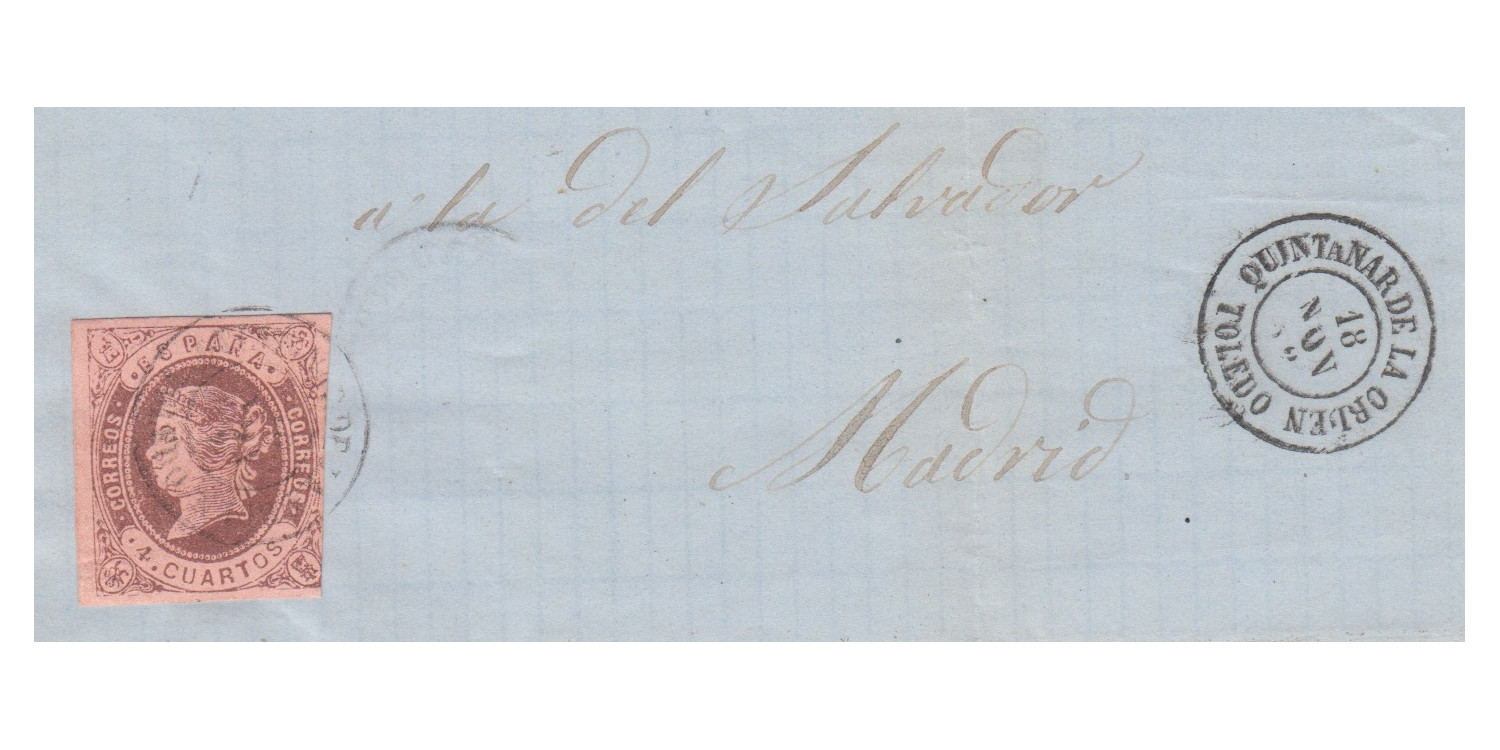 a la del Salvador
Madrid.
QUINTANAR DE LA ORDEN
TOLEDO
18
NOV
ESPAÑA
CORREOS
CORREOS
4 CUARTOS